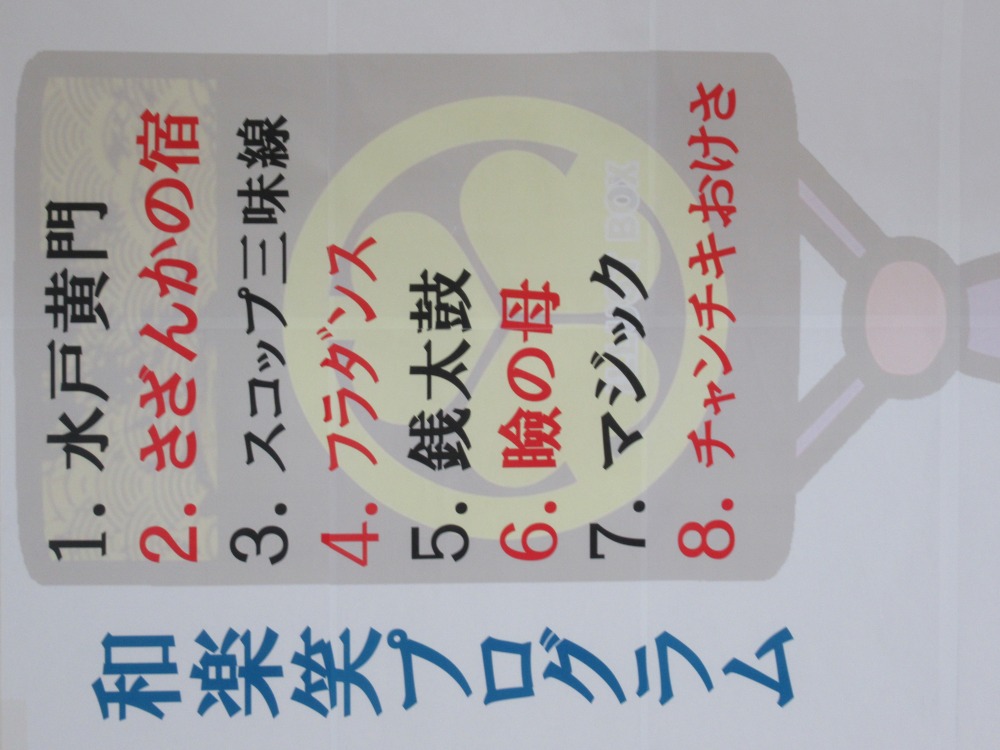 和楽笑プログラム
1. 水戸黄門
2. さざんかの宿
3. スコップ三味線
4. フラダンス
5. 銭太鼓
6. 瞼の母
7. マジック
8. チャンチキおけさ
BOX